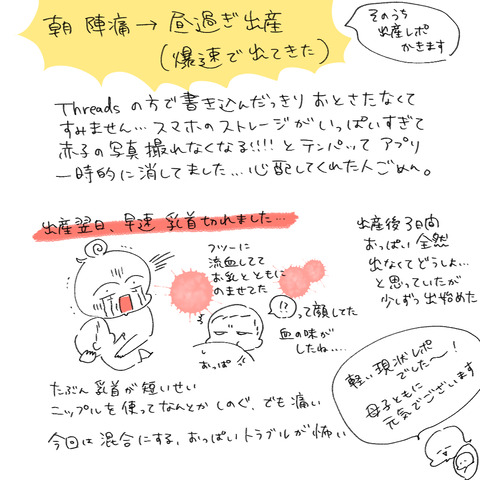 朝 陣痛 → 昼過ぎ出産
(爆速で出てきた)
そのうち
出産レポ
かきます
Threads の方で書き込んだっきり おとさたなくて
すみません… スマホのストレージが いっぱいすぎて
赤子の写真 撮れなくなる!!!! と テンパッて アプリ
一時的に消してました… 心配してくれた人ごめん。
出産翌日、早速 乳首切れました…
フツーに
流血してて
お乳とともに
のませてた
(!?)って顔してた
血の味が
したね……
おっぱ
出産後3日間
おっぱい全然
出なくてどうしよ…
と思っていたが
少しずつ出始めた
たぶん 乳首が短いせい
ニップルを使ってなんとかしのぐ、でも痛い
今回は 混合にする、おっぱいトラブルが怖い
軽い現状レポ
でした〜!
母子ともに
元気でございます